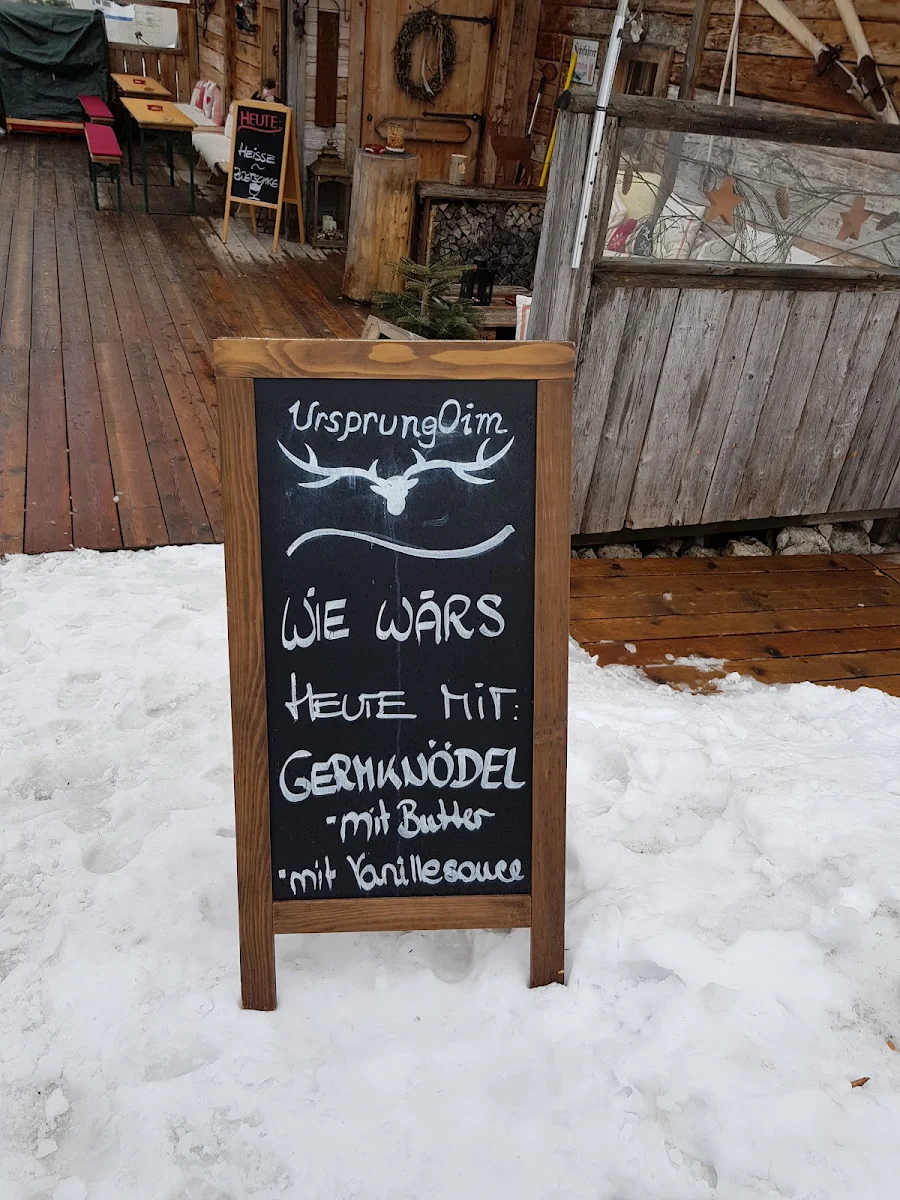 HEUTE:
HEISSE
UrsprungOim
WIE WÄRS
HEUTE MIT:
GERMKNÖDEL
-mit Butter
-mit Vanillesauce